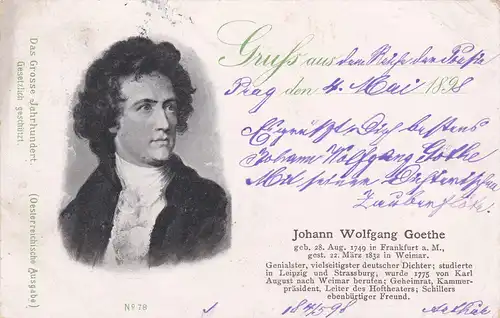 Das Grosse Jahrhundert. (Oesterreichische Ausgabe)
Gesetzlich geschützt.
Gruss aus der
Prag den 4. Mai 1898
Es grüßt Dich bestens
Johann Wolfgang Göthe
Mit seiner
Zauberflöte
Johann Wolfgang Goethe
geb. 28. Aug. 1749 in Frankfurt a. M.,
gest. 22. März 1832 in Weimar.
Genialster, vielseitigster deutscher Dichter; studierte
in Leipzig und Strassburg, wurde 1775 von Karl
August nach Weimar berufen; Geheimrat, Kammer-
präsident, Leiter des Hoftheaters; Schillers
ebenbürtiger Freund.
No 78